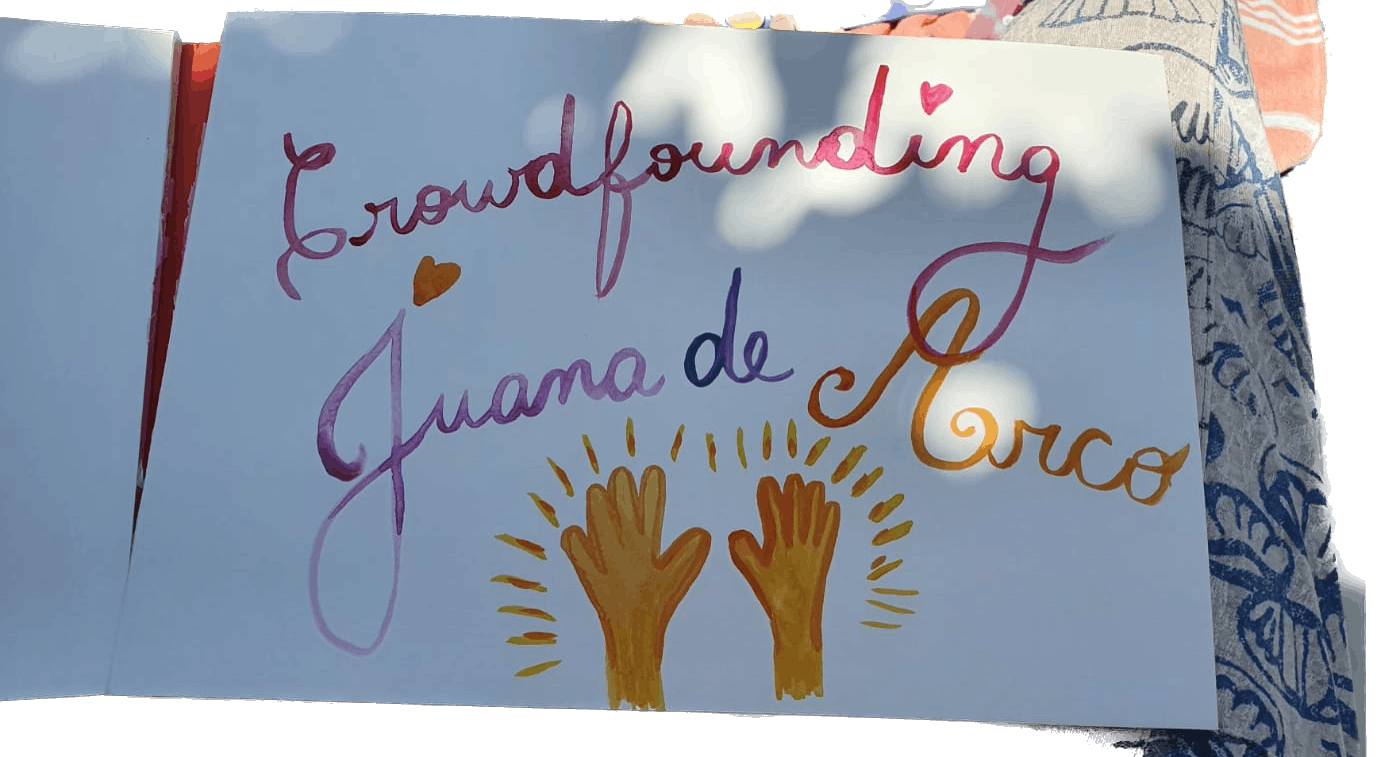 Crowdfounding
Juana de Arco